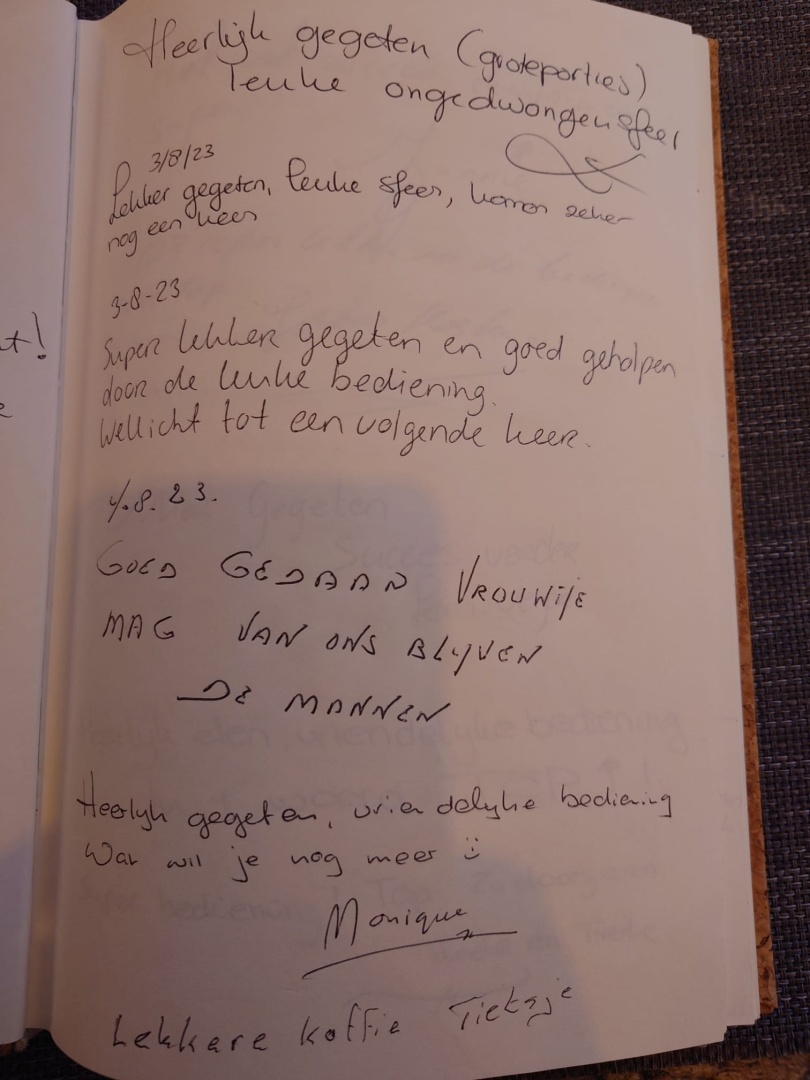 Heerlijk gegeten (grote porties)
leuke ongedwongen sfeer
3/8/23
Lekker gegeten, leuke sfeer, komen zeker
nog een keer
3-8-23
Super lekker gegeten en goed geholpen
door de leuke bediening.
Wellicht tot een volgende keer.
4.8.23.
GOED GEDAAN VROUWTJE
MAG VAN ONS BLIJVEN
DE MANNEN
Heerlijk gegeten, vriendelijke bediening
Wat wil je nog meer :)
Monique
Lekkere koffie Tietsje